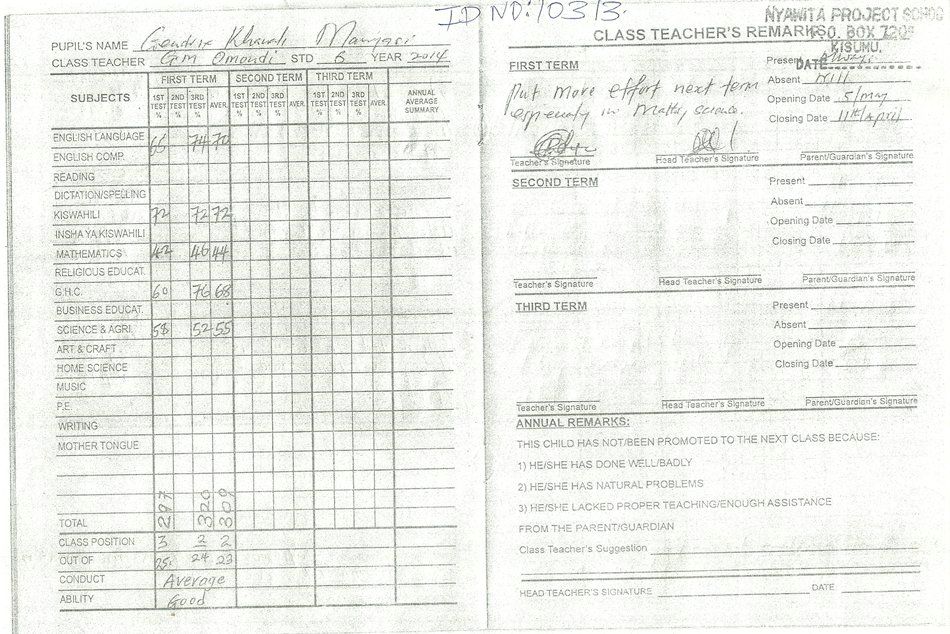 ID NO: 10313.
PUPIL'S NAME Gendrix Khavah
CLASS TEACHER G.M Omondi STD 6 YEAR 2014
SUBJECTS FIRST TERM SECOND TERM THIRD TERM ANNUAL AVERAGE SUMMARY
1ST TEST % 2ND TEST % 3RD TEST % AVER. 1ST TEST % 2ND TEST % 3RD TEST % AVER. 1ST TEST % 2ND TEST % 3RD TEST % AVER.
ENGLISH LANGUAGE 66 74 70
ENGLISH COMP.
READING
DICTATION/SPELLING
KISWAHILI 72 72 72
INSHA YA KISWAHILI
MATHEMATICS 42 46 44
RELIGIOUS EDUCAT.
G.H.C. 60 76 68
BUSINESS EDUCAT.
SCIENCE & AGRI. 58 52 55
ART & CRAFT
HOME SCIENCE
MUSIC
P.E.
WRITING
MOTHER TONGUE
TOTAL 297 320 309
CLASS POSITION 3 2 2
OUT OF 25. 24 23
CONDUCT Average
ABILITY Good
NYAWITA PROJECT SCHOO
P.O. BOX 720
KISUMU.
DATE
CLASS TEACHER'S REMARKS
FIRST TERM
Put more effort next term
especially in Maths, science.
Present
Absent
Opening Date 5/may
Closing Date 11th/April
Teacher's Signature Head Teacher's Signature Parent/Guardian's Signature
SECOND TERM
Present
Absent
Opening Date
Closing Date
Teacher's Signature Head Teacher's Signature Parent/Guardian's Signature
THIRD TERM
Present
Absent
Opening Date
Closing Date
Teacher's Signature Head Teacher's Signature Parent/Guardian's Signature
ANNUAL REMARKS:
THIS CHILD HAS NOT/BEEN PROMOTED TO THE NEXT CLASS BECAUSE:
1) HE/SHE HAS DONE WELL/BADLY
2) HE/SHE HAS NATURAL PROBLEMS
3) HE/SHE LACKED PROPER TEACHING/ENOUGH ASSISTANCE
FROM THE PARENT/GUARDIAN
Class Teacher's Suggestion
HEAD TEACHER'S SIGNATURE DATE